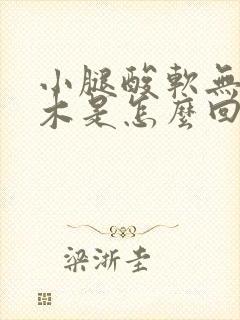 小腿酸軟無
木是怎麼回
梁浙圭